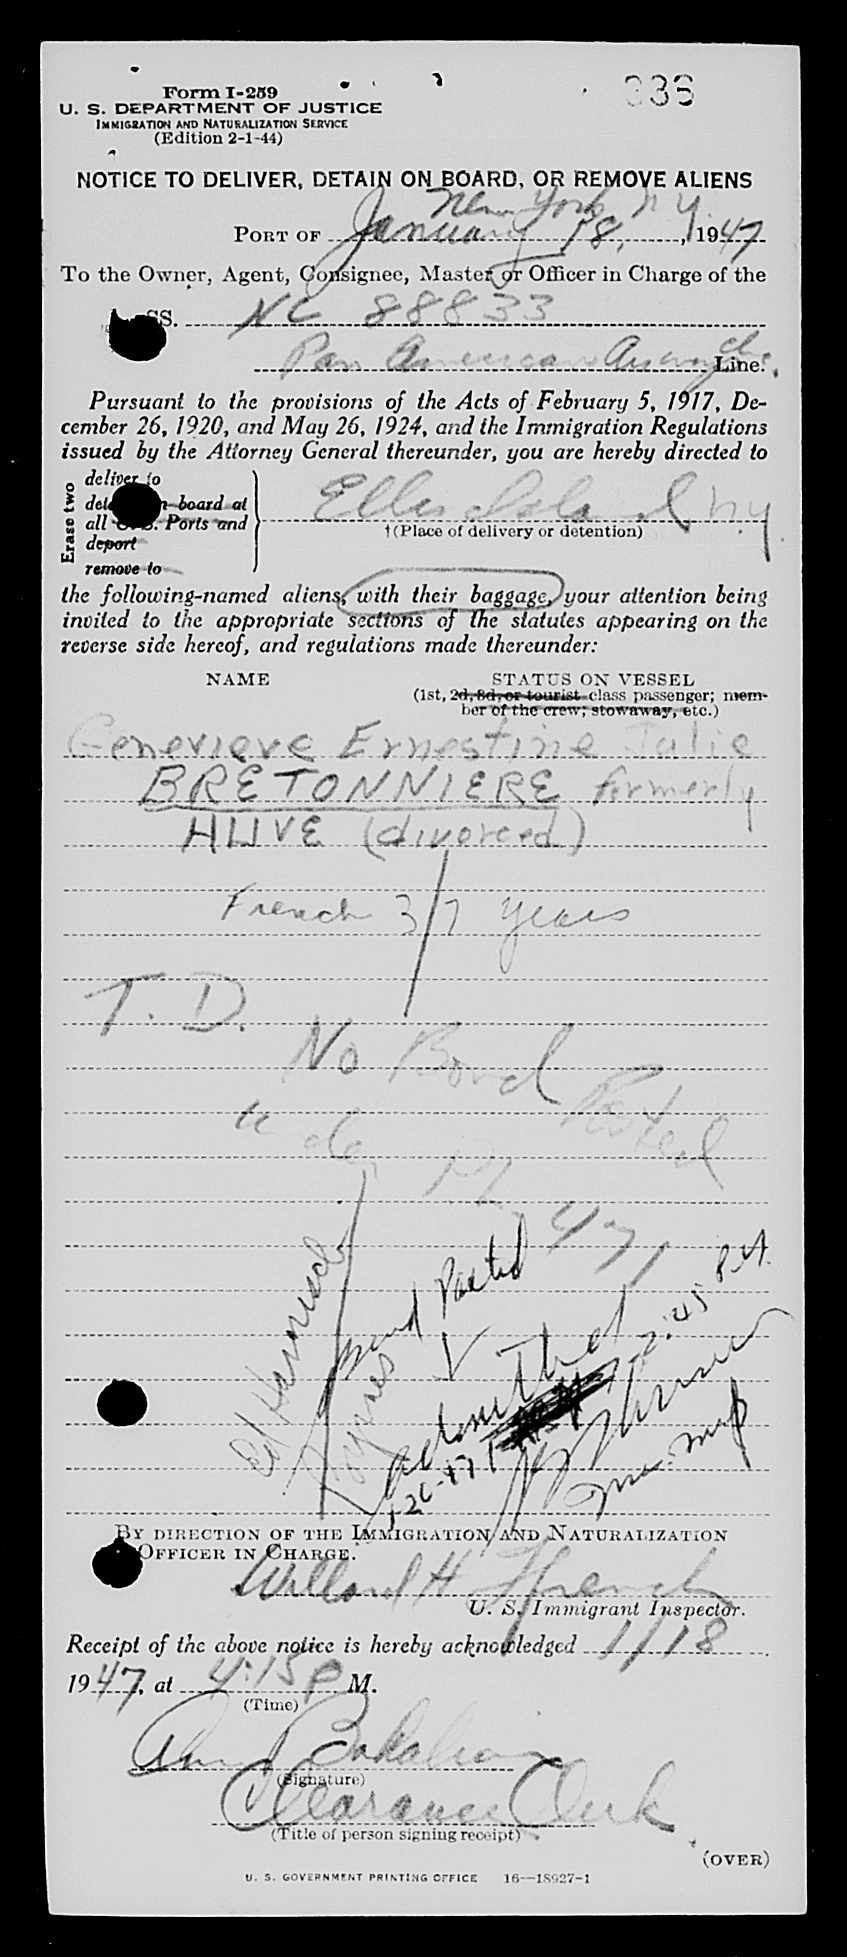 336
Form I-259
U. S. DEPARTMENT OF JUSTICE
IMMIGRATION AND NATURALIZATION SERVICE
(Edition 2-1-44)
NOTICE TO DELIVER, DETAIN ON BOARD, OR REMOVE ALIENS
New York, N Y.
PORT OF January 18, , 1947
To the Owner, Agent, Consignee, Master or Officer in Charge of the
SS. NC 88833
Pan American Airways Inc. Line.
Pursuant to the provisions of the Acts of February 5, 1917, De-
cember 26, 1920, and May 26, 1924, and the Immigration Regulations
issued by the Attorney General thereunder, you are hereby directed to
Erase two
deliver to
on board at
all U.S. Ports and
deport
remove to
Ellis Island N.Y.
†(Place of delivery or detention)
the following-named aliens, with their baggage, your attention being
invited to the appropriate sections of the statutes appearing on the
reverse side hereof, and regulations made thereunder:
NAME
STATUS ON VESSEL
(1st, 2d, 3d, or tourist class passenger; mem-
ber of the crew; stowaway, etc.)
Genevieve Ernestine Julie
BRETONNIERE formerly
HUVE (divorced)
French 37 years
T. D.
No Bond Posted
Bond Posted
admitted
1-26-47
2:45 P.M.
BY DIRECTION OF THE IMMIGRATION AND NATURALIZATION
OFFICER IN CHARGE.
Willard H. French
U. S. Immigrant Inspector.
Receipt of the above notice is hereby acknowledged 1/18
1947, at 4:15 P M.
(Time)
(Signature)
Clearance Clerk
(Title of person signing receipt)
(OVER)
U. S. GOVERNMENT PRINTING OFFICE 16—18927-1